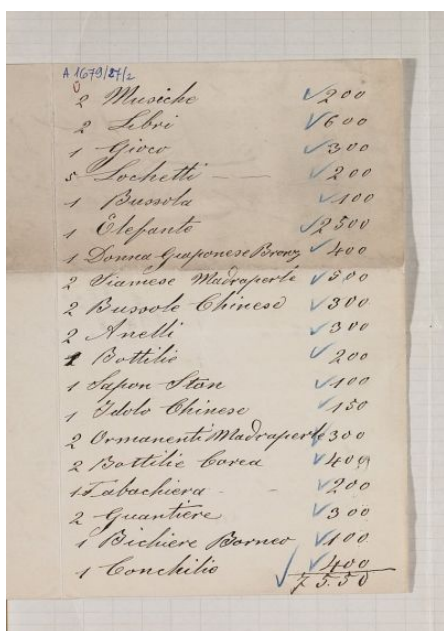 A 1679/27/2
2 Musiche 200
2 Libri 600
1 Gioco 300
5 Lochetti — — 200
1 Bussola 100
1 Elefante 2500
1 Donna Giaponese Bronz 400
2 Siamese Madraperle 500
2 Bussole Chinese 300
2 Anelli 300
1 Bottilie 200
1 Sapon Stan 100
1 Idolo Chinese 150
2 Ormanenti Madraperle 300
2 Bottilie Corea 400
1 Tabachiera - - 200
2 Guantiere 300
1 Bichiere Borneo 100
1 Conchilio 400
7550